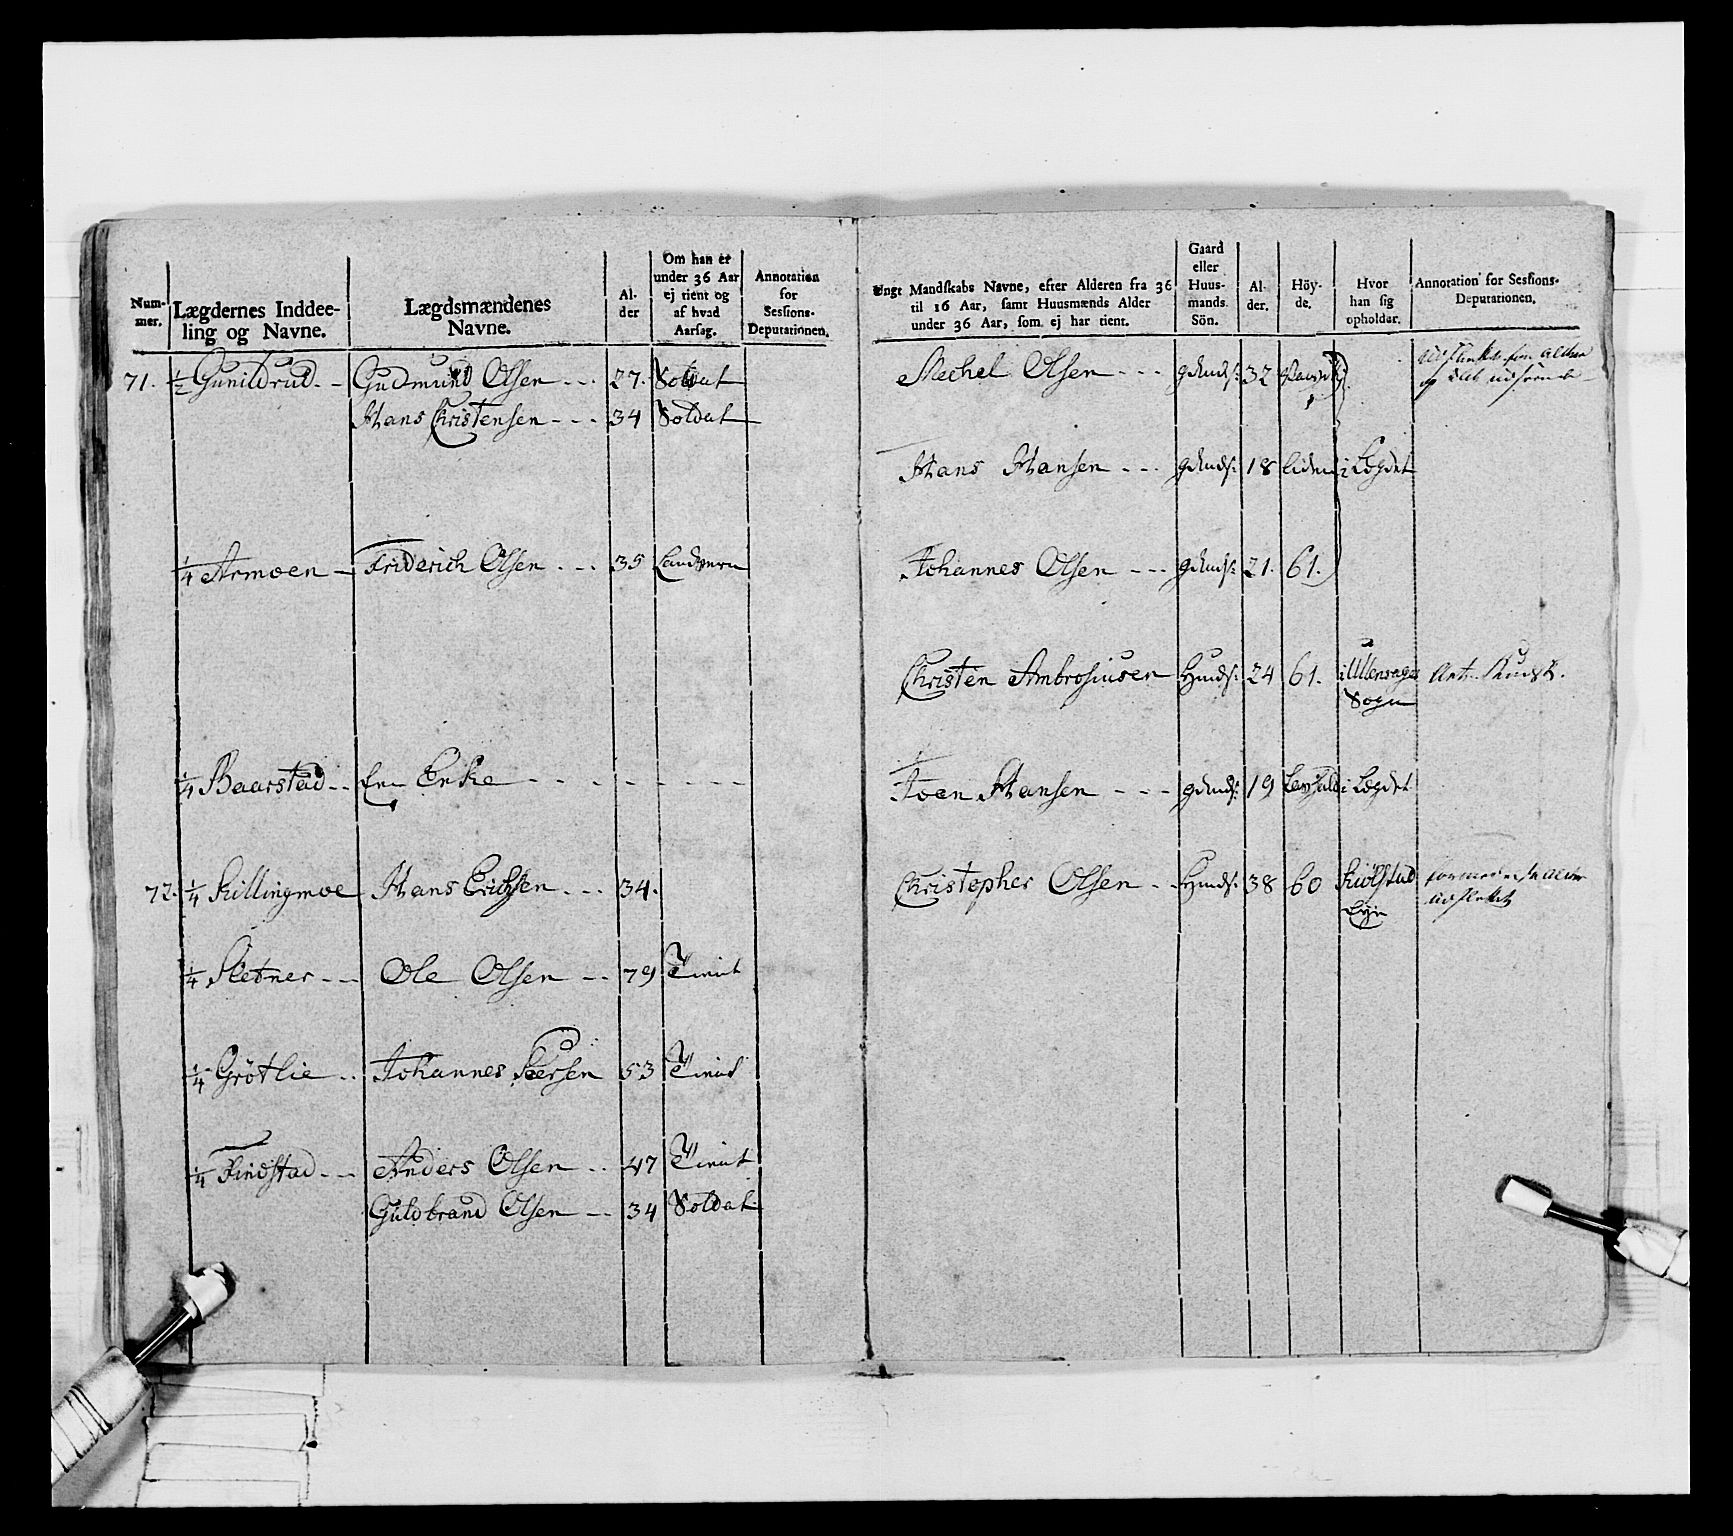 Num-
mer.
Lægdernes Inddee-
ling og Navne.
Lægdsmændenes
Navne.
Al-
der
Om han er
under 36 Aar
ej tient og
af hvad
Aarsag.
Annotation
for
Sessions-
Deputationen.
71. 1/2 Gunildrud Gudmund Olsen 27. Soldat
Hans Christensen 34 Soldat
1/4 Armoen Friderich Olsen 35 Landvern
1/4 Baarstad En Enke
72. 1/4 Killingmoe Hans Erichsen 34.
1/4 Sletner Ole Olsen 79 Tient
1/4 Grötlie Johannes Peersen 53 Tient
1/4 Findstad Anders Olsen 47 Tient
Guldbrand Olsen 34 Soldat
Ungt Mandskabs Navne, efter Alderen fra 36
til 16 Aar, samt Huusmænds Alder
under 36 Aar, som ej har tient.
Gaard
eller
Huus-
mands.
Sön.
Al-
der.
Höy-
de.
Hvor
han sig
opholder.
Annotation for Sessions-
Deputationen.
Mechel Olsen gdmds: 32
Hans Hansen gdmds: 18 liden i Lægdet
Johannes Olsen gdmds: 21. 61.
Christen Ambrosiusen Hmds: 24 61. i Ullensager
Sogn
Joen Hansen gdmds: 19 i Lægdet
Christopher Olsen Hmds: 38 60 Kiölstad
Eye
udslettet